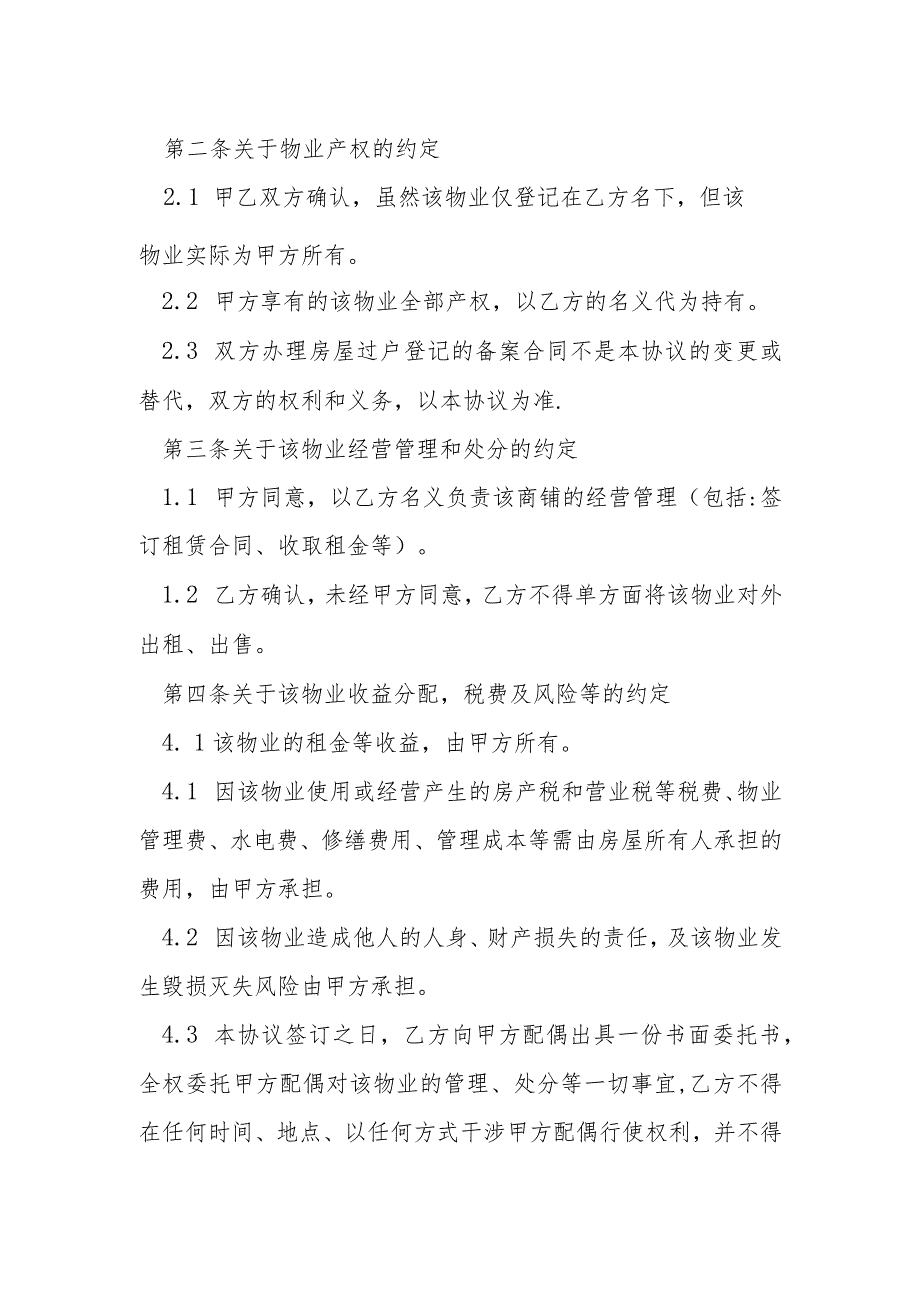 第二条关于物业产权的约定
2.1 甲乙双方确认，虽然该物业仅登记在乙方名下，但该
物业实际为甲方所有。
2.2 甲方享有的该物业全部产权，以乙方的名义代为持有。
2.3 双方办理房屋过户登记的备案合同不是本协议的变更或
替代，双方的权利和义务，以本协议为准.
第三条关于该物业经营管理和处分的约定
1.1 甲方同意，以乙方名义负责该商铺的经营管理（包括:签
订租赁合同、收取租金等）。
1.2 乙方确认,未经甲方同意,乙方不得单方面将该物业对外
出租、出售。
第四条关于该物业收益分配，税费及风险等的约定
4. 1该物业的租金等收益，由甲方所有。
4.1 因该物业使用或经营产生的房产税和营业税等税费、物业
管理费、水电费、修缮费用、管理成本等需由房屋所有人承担的
费用，由甲方承担。
4.2 因该物业造成他人的人身、财产损失的责任,及该物业发
生毁损灭失风险由甲方承担。
4.3 本协议签订之日，乙方向甲方配偶出具一份书面委托书，
全权委托甲方配偶对该物业的管理、处分等一切事宜,乙方不得
在任何时间、地点、以任何方式干涉甲方配偶行使权利，并不得